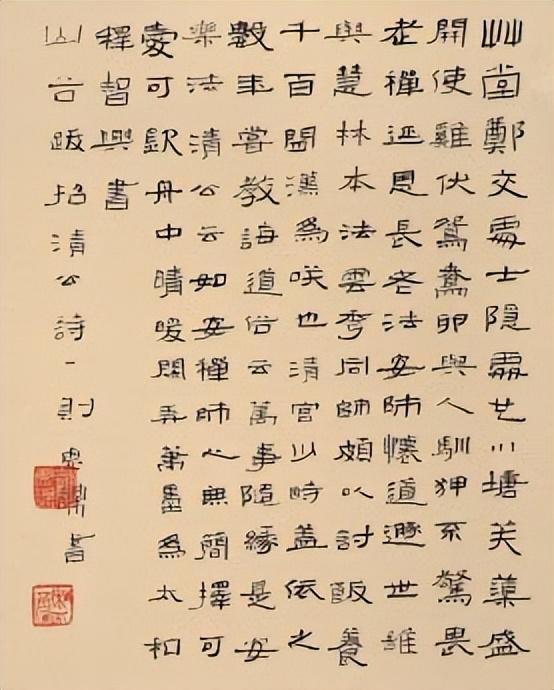 艸堂鄭交處士隱處也小塘芙蕖盛
開使雞伏鴛鴦卵與人馴狎不驚畏
老禪延恩長老法安師懷道遯世雖
與慧林本法雲秀同師頗以討飯養
千百閒漢為咲也清官少時蓋依之
數年嘗教誨道俗云萬事隨緣是安
樂法清公云如安禪師心無簡擇可
愛可欽舟中晴暖閑弄萬墨為太和
釋智興書
山谷跋招清公詩一則書